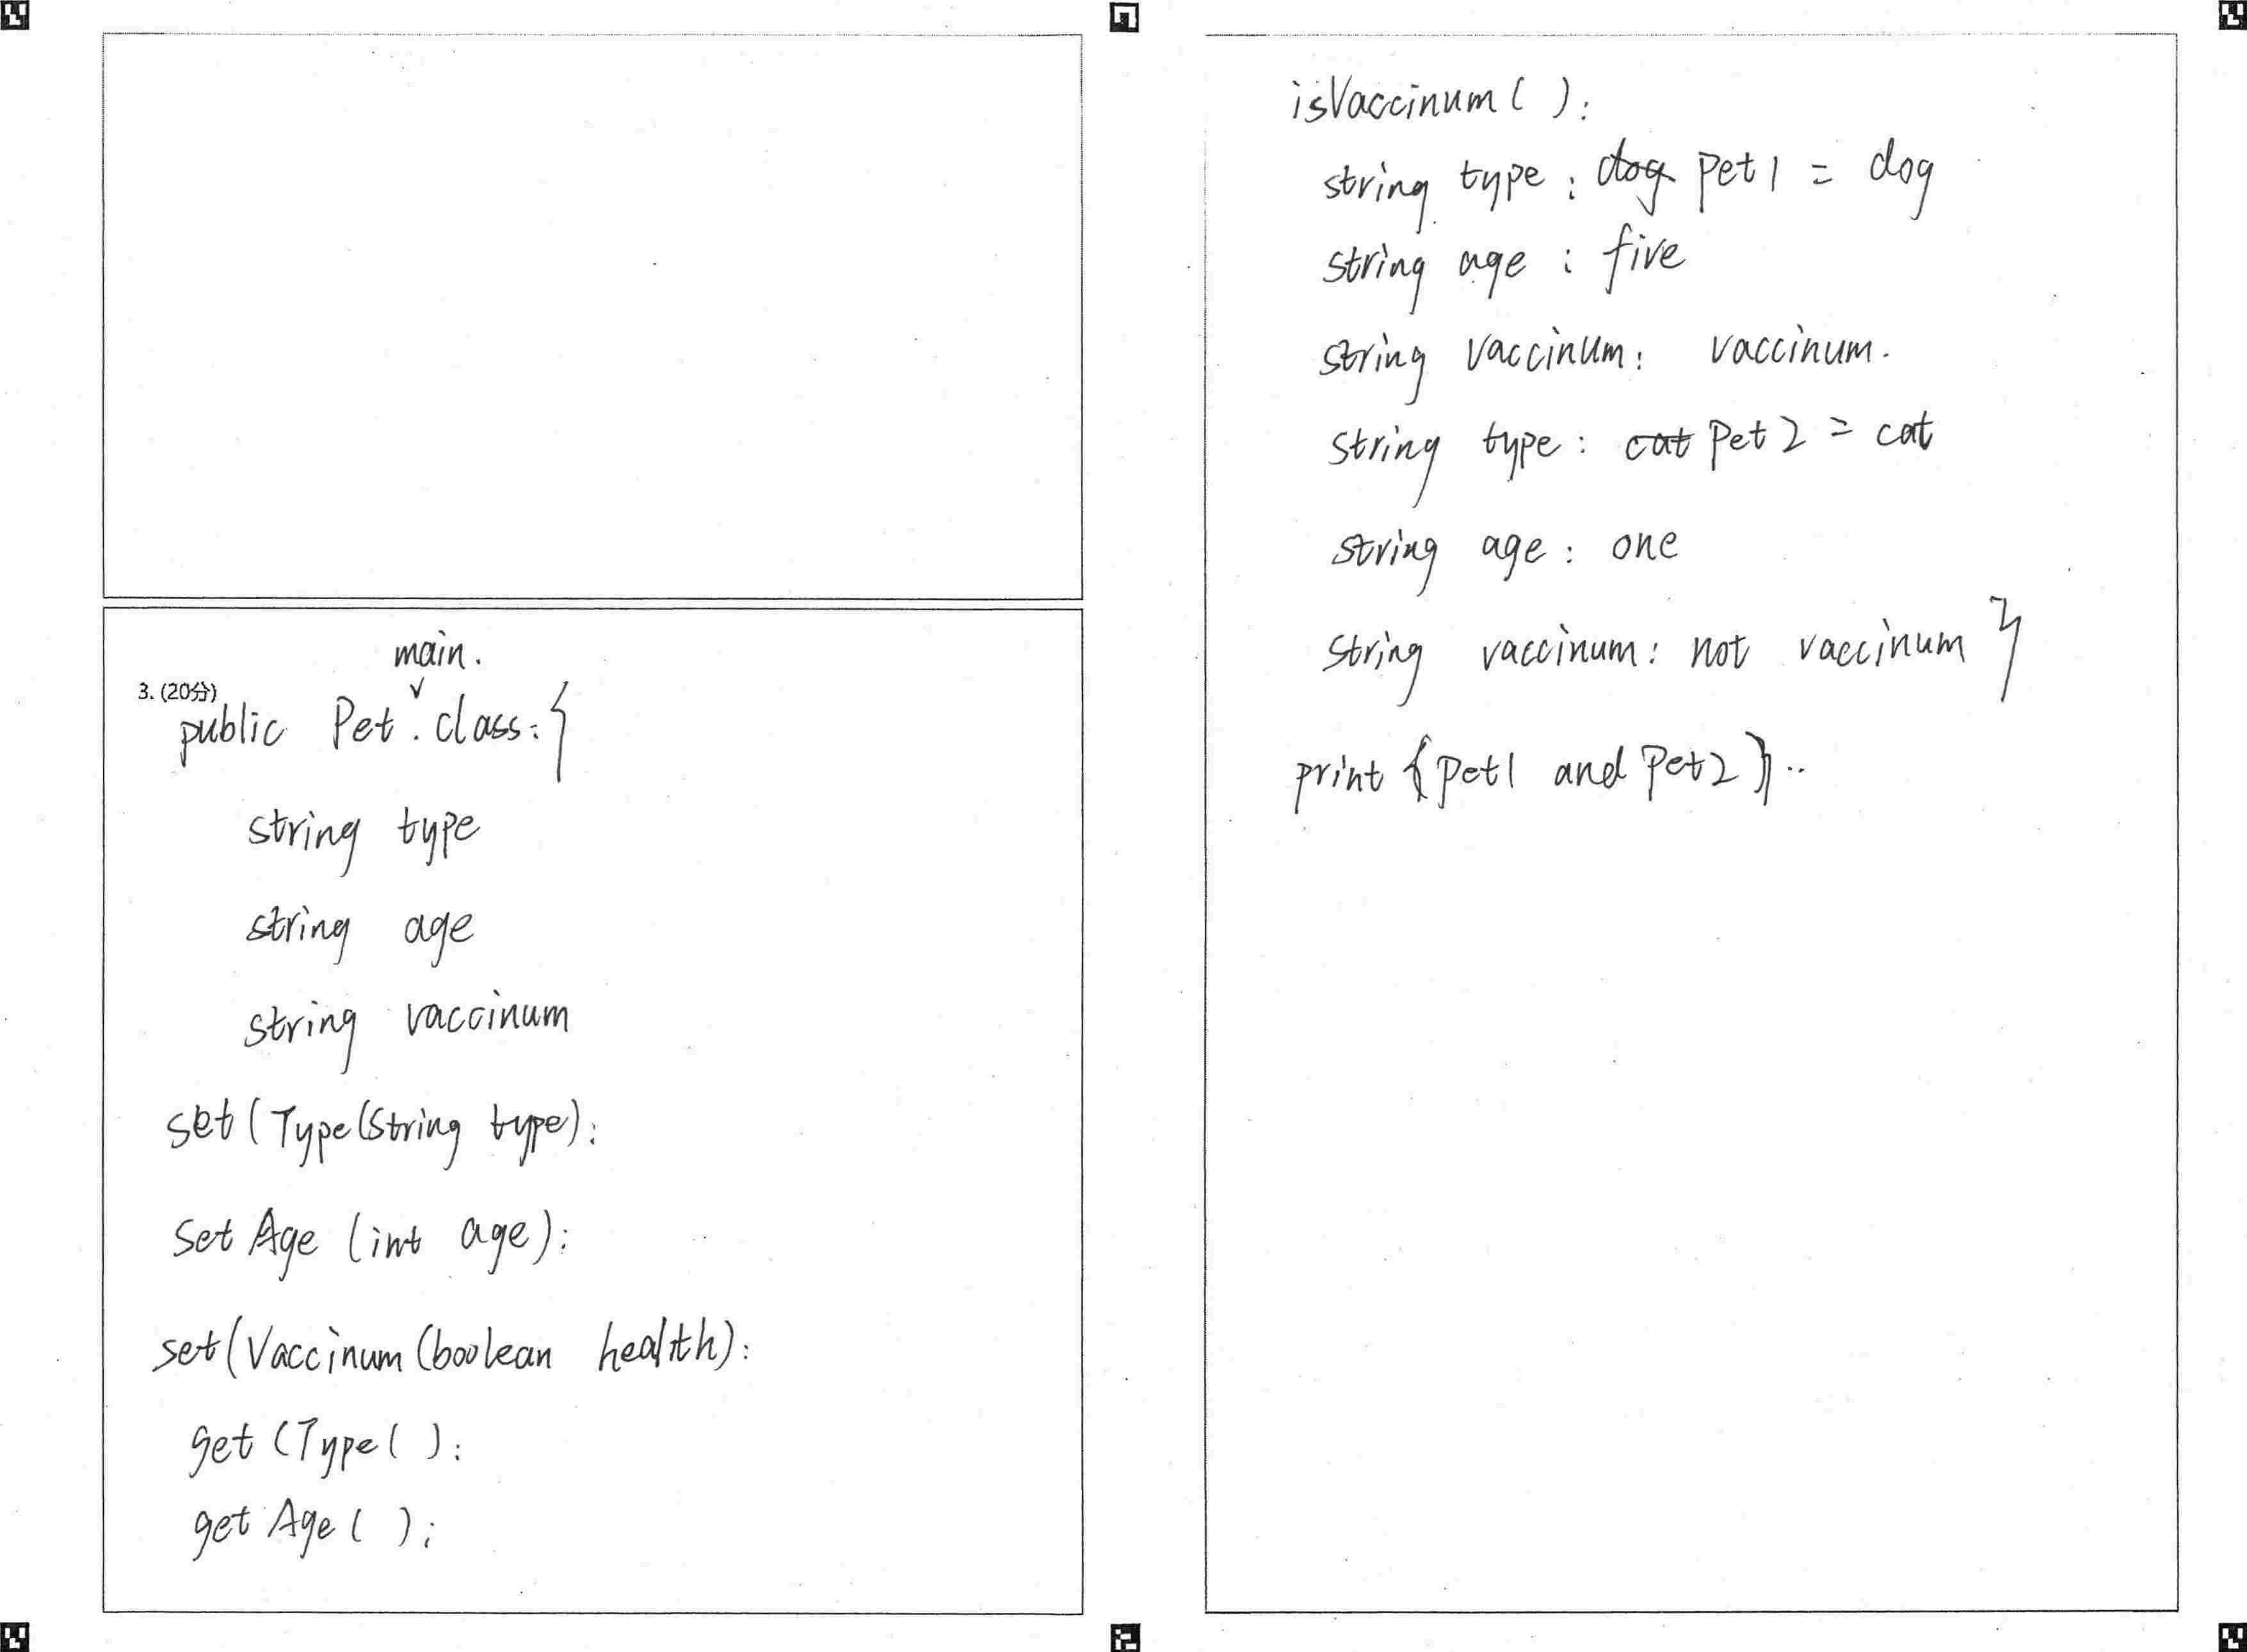 main.
3. (20分)
public Pet . class: {
string type
string age
string vaccinum
set ( Type (String type):
Set Age (int age):
set ( Vaccinum (boolean health):
get ( Type ( ):
get Age ( ):
isVaccinum ( ):
string type : dog pet1 = dog
string age : five
string vaccinum: vaccinum.
string type: cat pet2 = cat
string age: one
string vaccinum: not vaccinum }
print {pet1 and pet2}..